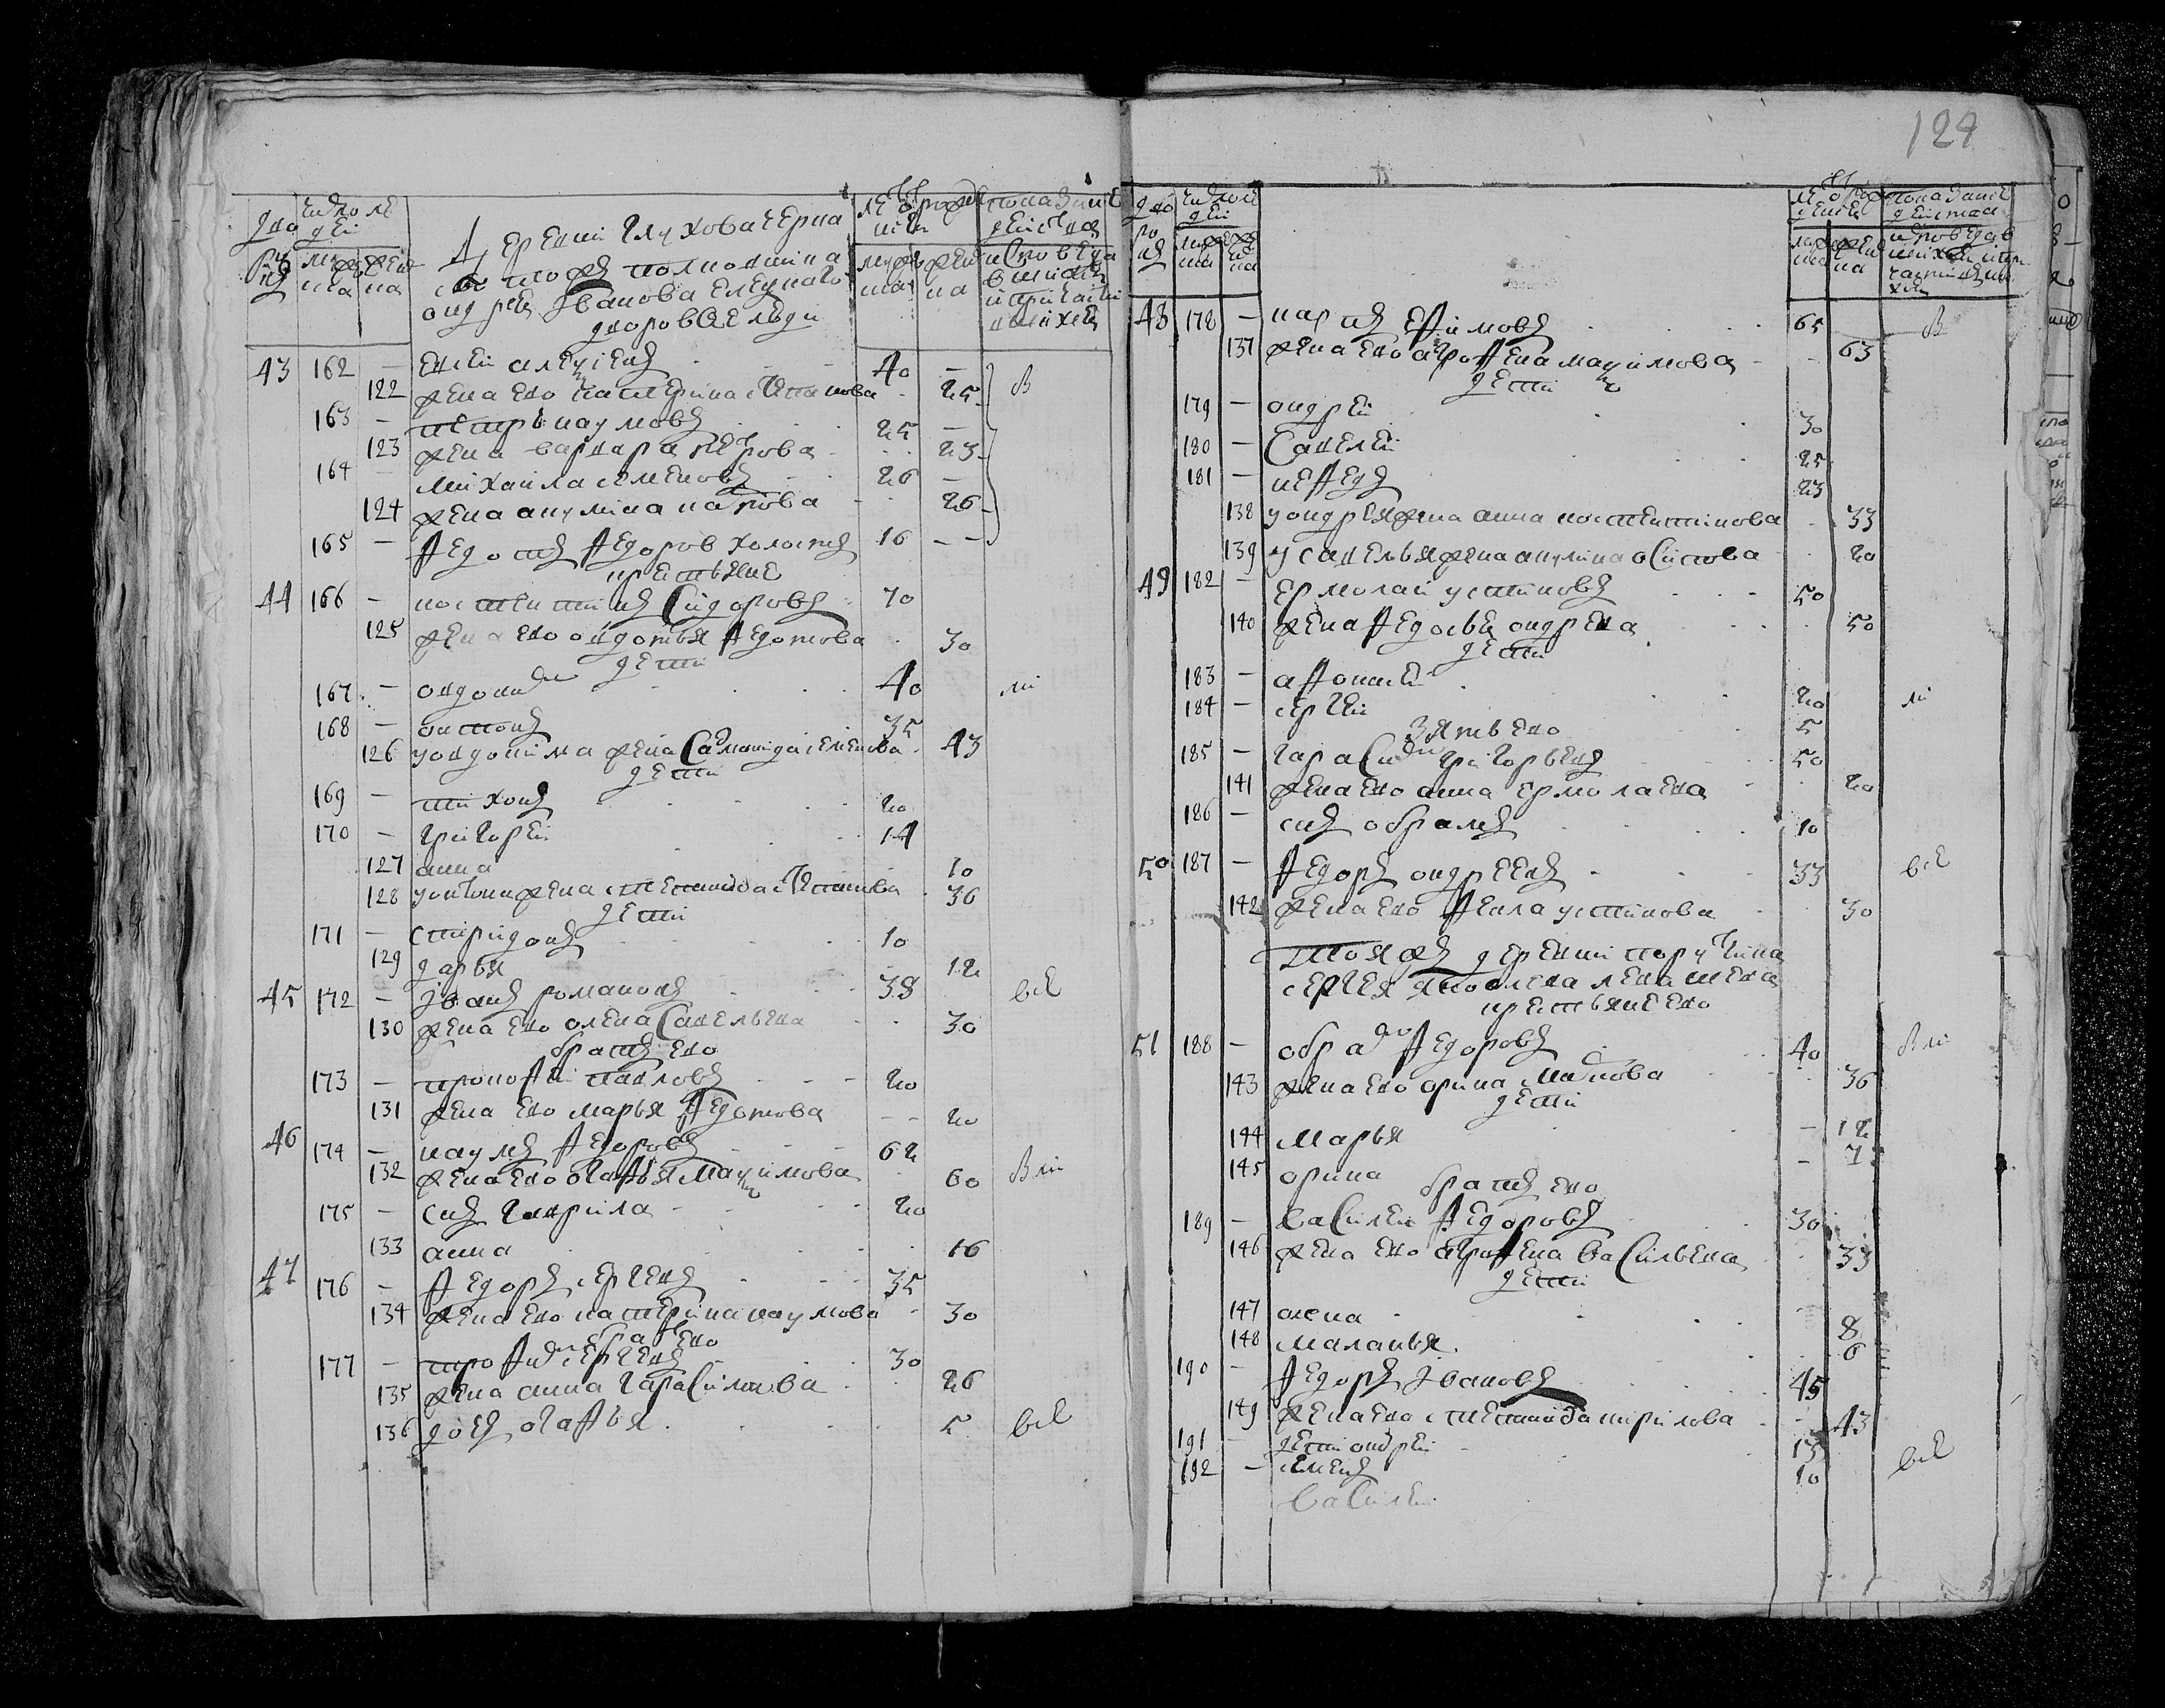 124
дво
ры
число лю
дей
мужес
ка
женс
ка
Деревни Глухова Черна
тожъ полковника
ондрея Іванова
дворовые люди
лѣ от рож
дения
мужес
ка
женс
ка
показание
действа
43 162 — 40 —
122 жена ево катерина степанова 25 В
163 — петръ наумовъ 25 —
123 жена варвара петрова 23
164 михаила семеновъ 26 —
124 жена акулина карпова 26
165 — Федотъ Федоров холостъ 16 — —
крестьяне
44 166 — костентинъ Сидоровъ 70
125 жена ево овдотья Федотова 30
дети
167 — овдоким 40 ли
168 — онтонъ 35
126 у овдокима жена Саломанида семенова 43
дети
169 — тихонъ 20
170 — григорей 14
127 анна 10
128 у онтона жена степанида степанова 36
дети
171 — спиридонъ 10
129 дарья 12
45 172 — Іванъ романовъ 38 всѣ
130 жена ево олена Савельева 30
братъ ево
173 — прокофей павловъ 20
131 жена ево марья Федотова — — 20
46 174 — наумъ Федоровъ 62
132 жена ево огафья Макѵимова 60 В ли
175 — снъ гаврила 20
133 анна 16
47 176 — Федоръ сергевъ 35
134 жена ево катерина наумова 30
брат ево
177 — трофим сергевъ 30
135 жена анна гарасимова 26
136 дочь огафья 5 всѣ
дво
ры
число лю
дей
мужес
ка
женс
ка
лѣ от рож
дения
мужес
ка
женс
ка
показание
действа
48 178 — карпъ Ефимовъ 65 В
137 жена ево агрофена макѵимова 63
дети
179 — ондрей 30
180 — Савелей 25
181 — нефедъ 23
138 у ондрея жена анна костентинова 33
139 у савелья жена акулина осипова 20
49 182 — ермолай устиновъ 50
140 жена Федосья ондрева 50
дети
183 — афонасей 20 ли
184 — сергей 5
зять ево
185 — гарасим григорьевъ 50
141 жена ево анна ермолаева 20
186 — снъ обрамъ 10
50 187 — Федоръ ондреевъ 33 всѣ
142 жена ево Фекла устинова 30
тояжъ деревни порутчика
сергея яковлева левашева
крестьяне ево
51 188 — обрам Федоровъ 40 В ли
143 жена ево орина Маркова 36
дети
144 марья — 12
145 орина — 7
братъ ево
189 — Василей Федоровъ 30
146 жена ево агрофена Васильева 33
дети
147 олена 8
148 маланья 6
190 — Федоръ Івановъ 45
149 жена ево степанида кирилова — 43
191 — дети ондрей 15
192 — семенъ 10 всѣ
Василей